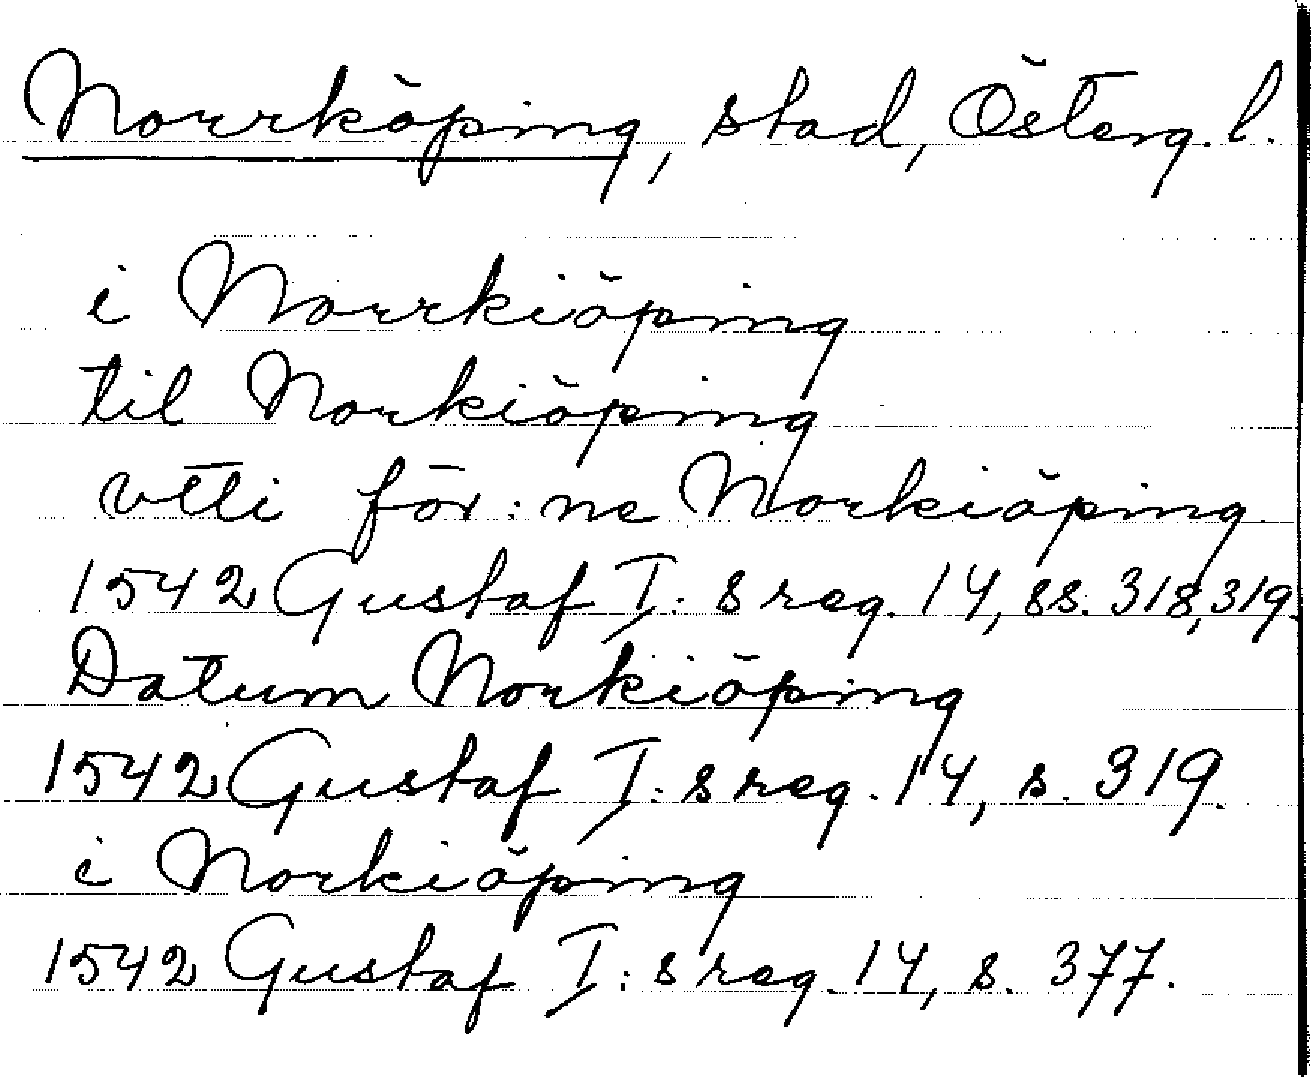 Norrköping, stad, Österg. l.
i Norrkiöping
til Norkiöping
vtti för:ne Norkiöping
1542 Gustaf I:s reg. 14, ss. 318, 319.
Datum Norkiöping
1542 Gustaf I:s reg. 14, s. 319.
i Norkiöping
1542 Gustaf I:s reg. 14, s. 377.